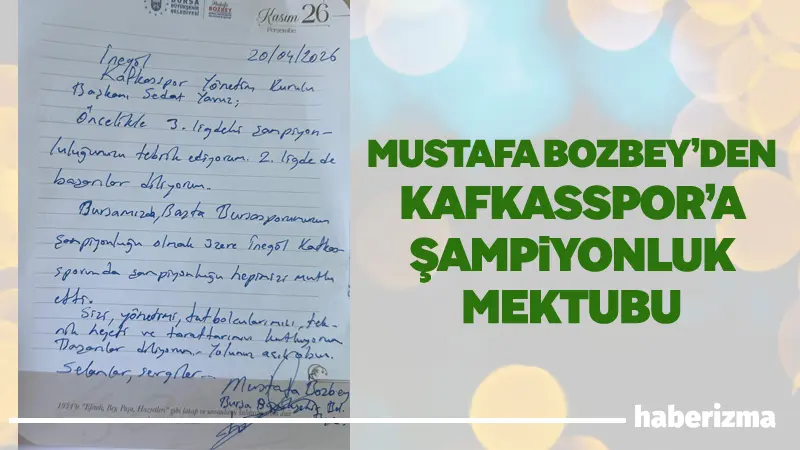 BURSA
BÜYÜKŞEHİR
BELEDİYESİ
BOZBEY
Kasım 26
Perşembe
20/04/2026
İnegöl
Kafkasspor Yönetim Kurulu
Başkanı Sedat Yavuz;
Öncelikle 3. ligdeki şampiyon-
luluğunuzu tebrik ediyorum. 2. ligde de
başarılar diliyorum.
Bursamızda, Başta Bursasporumuzun
şampiyonluğu olmak üzere İnegöl Kafkas-
sporunda şampiyonluğu hepimizi mutlu
etti.
Sizi, yönetimi, futbolcularımızı, tek-
nik heyeti ve taraftarımızı kutluyorum
Başarılar diliyorum. Yolunuz açık olsun.
Selamlar, sevgiler
Mustafa Bozbey
Bursa Büyükşehir Bel.
MUSTAFA BOZBEY'DEN
KAFKASSPOR'A
ŞAMPİYONLUK
MEKTUBU
haberizma